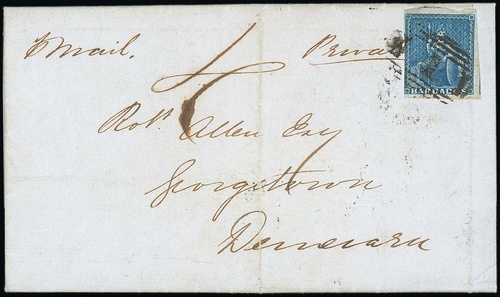 p Mail. Private
Robt. Allen Esq
Georgetown
Demerara
BARBADOS